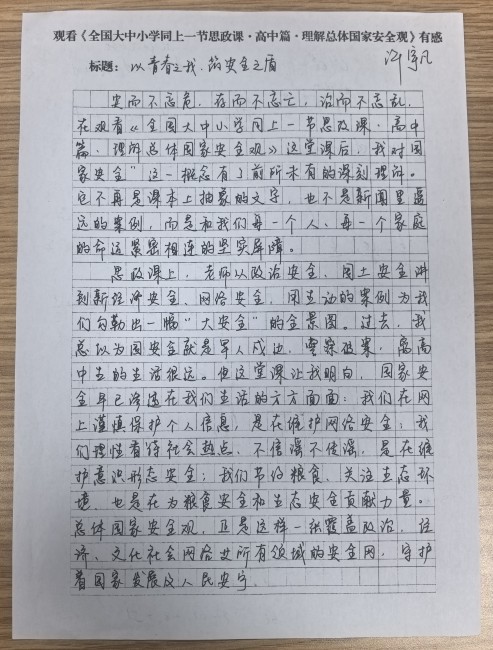 观看《全国大中小学同上一节思政课·高中篇·理解总体国家安全观》有感
标题：以青春之我，筑安全之盾
许宇凡
安而不忘危，存而不忘亡，治而不忘乱。
在观看《全国大中小学同上一节思政课·高中
篇·理解总体国家安全观》这堂课后，我对国
家安全”这一概念有了前所未有的深刻理解。
它不再是课本上抽象的文字，也不是新闻里遥
远的案例，而是和我们每一个人、每一个家庭
的命运紧密相连的坚实屏障。
思政课上，老师从政治安全、国土安全讲
到新经济安全、网络安全，用生动的案例为我
们勾勒出一幅“大安全”的全景图。过去，我
总以为国安全就是军人戍边，警察破案，离高
中生的生活很远。但这堂课让我明白，国家安
全早已渗透在我们生活的方方面面：我们在网
上谨慎保护个人信息，是在维护网络安全；我
们理性看待社会热点，不信谣不传谣，是在维
护意识形态安全；我们节约粮食、关注生态环
境，也是在为粮食安全和生态安全贡献力量。
总体国家安全观，正是这样一张覆盖政治、经
济、文化社会网络业所有领域的安全网，守护
着国家发展及人民安宁.